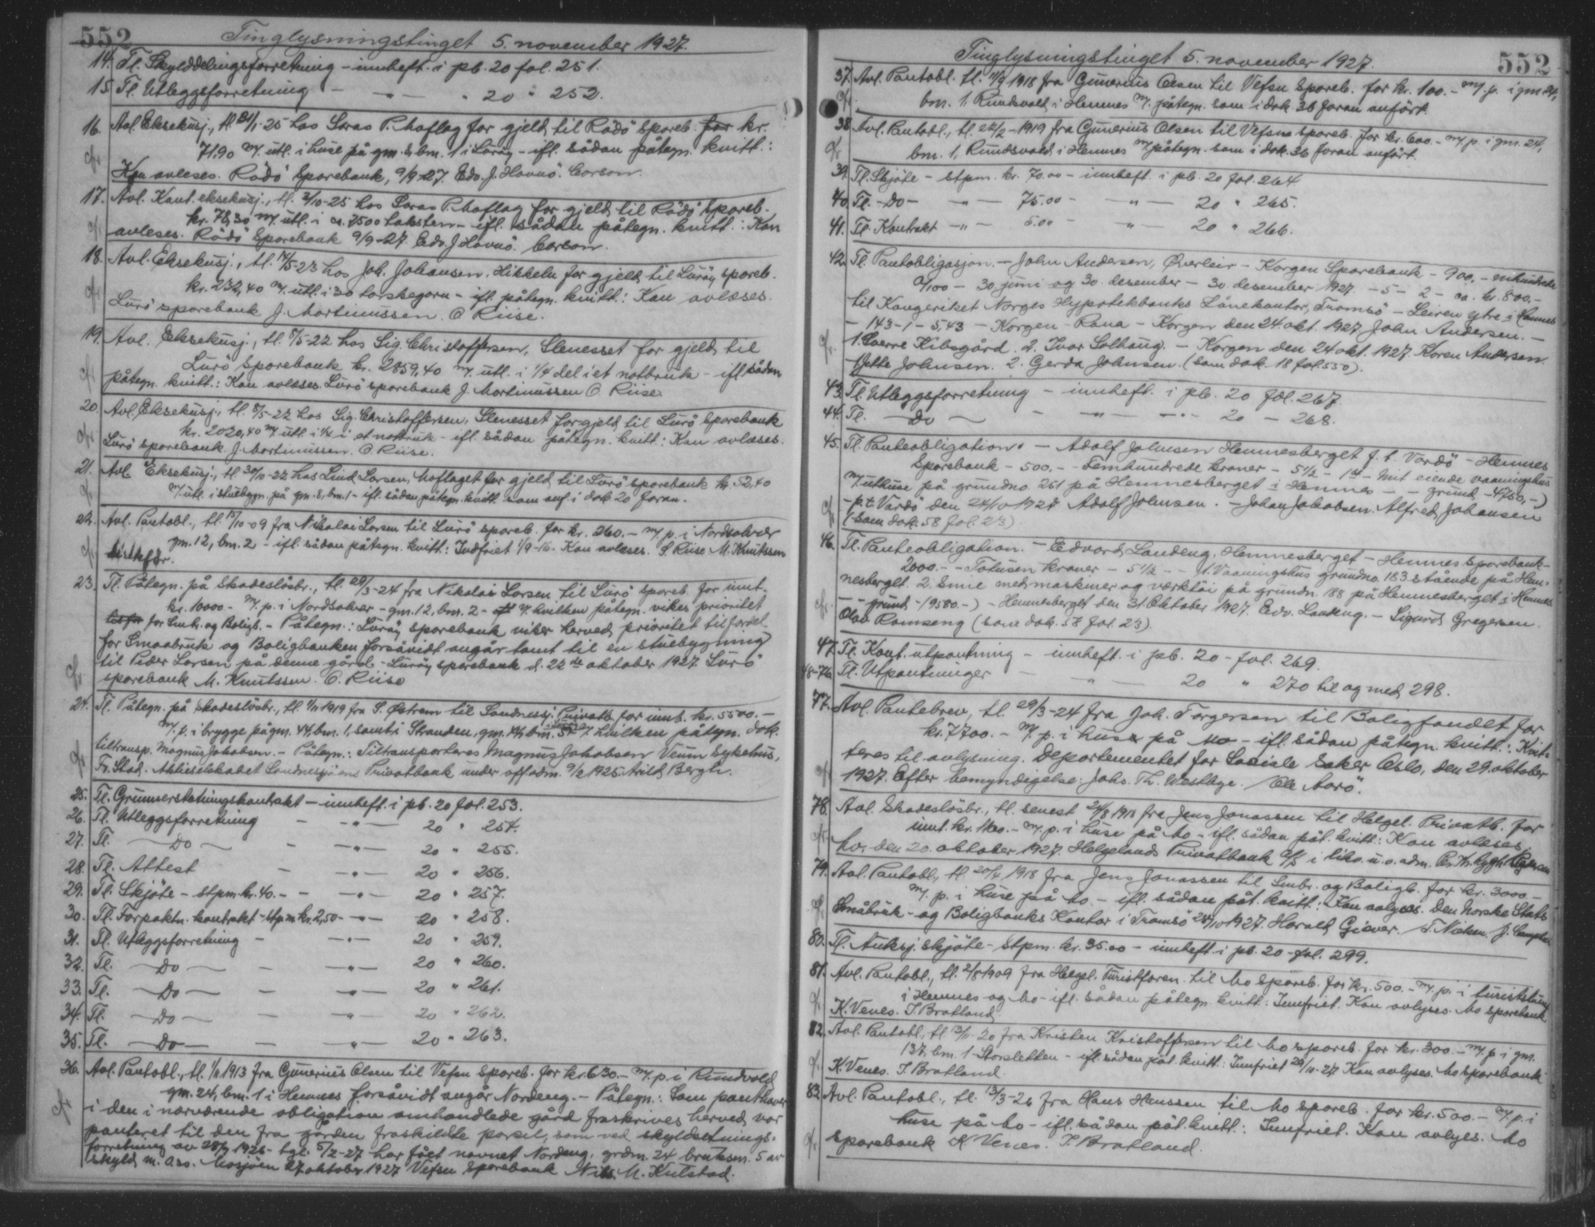 552
Tinglysningstinget 5. november 1927.
14. Tl. Skylddelingsforretning - innheft. i pb. 20 fol. 251.
15. Tl. Utleggsforretning - " - " 20 " 252.
16. Avl. Eksekusj., tl. 21/1-25 hos Loras P. Moflag for gjeld til Rødø spareb. for kr.
71.90 m/ utl. i huse på gm. 8 bm. 1 i Lurøy - ifl. sådan påtegn. kvitt.:
Kan avleses. Rødø Sparebank, 9/9-27. Edv. J. Hovnø. Carson.
17. Avl. Kont. eksekusj., tl. 2/10-25 hos Loras P. Moflag for gjeld til Rødø spareb.
kr. 78,30 m/ utl. i ca. 2500 taksten - ifl. sådan påtegn. kvitt.: Kan
avleses. Rødø Sparebank 9/9-27 Edv. J. Hovnø. Carson.
18. Avl. Eksekusj., tl. /5-23 hos Joh. Johansen, Hikkeln for gjeld til Lurøy spareb.
kr. 232,40 m/ utl. i 30 torskegarn - ifl. påtegn. kvitt.: Kan avleses.
Lurø sparebank J. Mortinussen. O Riise.
19. Avl. Eksekusj., tl. /5-22 hos Sig. Christoffersen, Slenesset for gjeld til
Lurø Sparebank kr. 2859,40 m/ utl. i 1/4 del i et notbruk - ifl. sådan
påtegn. kvitt.: Kan avleses Lurø sparebank J. Mortinussen O Riise.
20. Avl. Eksekusj., tl. /5-22 hos Sig. Christoffersen, Slenesset for gjeld til Lurø Sparebank
kr. 2020,40 m/ utl. i 1/4 i et notbruk - ifl. sådan påtegn. kvitt.: Kan avleses.
Lurø sparebank J. Mortinussen. O Riise.
21. Avl. Eksekusj., tl. 30/10-22 hos Lind Larsen, Moflaget for gjeld til Lurø sparebank kr. 52,40
m/ utl. i stuebygn. på gm. 8, bm. 1 - ifl. sådan påtegn. kvitt. som anf. i dok. 20 foran.
22. Avl. Pantobl., tl. 15/10-09 fra Nikolai Larsen til Lurø spareb. for kr. 260.- m/ p. i Nordsolvær
gm. 12, bm. 2 - ifl. sådan påtegn. kvitt: Indfriet 1/9-16. Kan avleses. O Riise M. Knutssen
23. Tl. Påtegn. på Skadesløsbr., tl. 29/3-24 fra Nikolai Larsen til Lurø spareb. for innt.
kr. 1000.- m/ p. i Nordsolvær - gm. 12, bm. 2 - ifl. hvilken påtegn. viker prioritet
for Smb. og Boligb. - Påtegn.: Lurøy sparebank viker herved prioritet til fordel
for Smaabruk og Boligbanken forsåvidt angår tomt til en stuebygning
til Peder Larsen på denne gård. Lurøy sparebank d. 22de oktober 1927 Lurø
sparebank M. Knutssen. O. Riise
24. Tl. Påtegn. på Skadesløsbr., tl. /11 1919 fra P. Østrem til Sandnessj. Privatb. for innt. kr. 5500.-
m/ p. i brygge på gm. 44, bm. 1, samt i Stranden, gm. 74, bm. ifl. hvilken påtegn. dok.
tiltransp. Magnus Jakobsen. - Påtegn.: Tiltransporteres Magnus Jakobsen Veum Sykehus,
Fr.Stad. Aktieselskabet Sandnessjøen Privatbank under off. adm. 9/2 1925 Arild Bergh.
25. Tl. Grunnerstatningskontrakt - innheft. i pb. 20 fol. 253.
26. Tl. Utleggsforretning - " - 20 " 254.
27. Tl. - Do - - " - 20 " 255.
28. Tl. Attest - " - 20 " 256.
29. Tl. Skjøte - stpm. kr. 40.- - " - 20 " 257.
30. Tl. Forpaktn. kontrakt - stpm. kr. 2,50 - " - 20 " 258.
31. Tl. Utleggsforretning - " - 20 " 259.
32. Tl. - Do - - " - 20 " 260.
33. Tl. - Do - - " - 20 " 261.
34. Tl. - Do - - " - 20 " 262.
35. Tl. - Do - - " - 20 " 263.
36. Avl. Pantobl., tl. 1/6 1913 fra Gunerius Olsen til Vefsn spareb. for kr. 630.- m/ p. i Rundvold
gm. 24, bm. 1 i Hemnes forsåvidt angår Nordeng. - Påtegn.: Som panthaver
i den i nærværende obligation omhandlede gård fraskrives herved vor
panteret til den fra gården fraskildte parsel, som ved skylddelings-
forretning av 28/7 1926 - tgl. 5/2-27 har fået navnet Nordeng, grdn. 24 bruksn. 5 av
skyld m. 0.20. Mosjøen 27 oktober 1927 Vefsn Sparebank Nils M. Kulstad.
552
Tinglysningstinget 5. november 1927.
37. Avl. Pantobl. tl. /2 1918 fra Gunerius Olsen til Vefsn Spareb. for kr. 100.- m/ p. i gm. 24,
bm. 1. Rundvold i Hemnes m/ påtegn. som i dok. 36 foran anført.
38. Avl. Pantobl., tl. 22/2-1919 fra Gunerius Olsen til Vefsn spareb. for kr. 600.- m/ p. i gm. 24,
bm. 1, Rundvold i Hemnes m/ påtegn. som i dok. 36 foran anført.
39. Tl. Skjøte - stpm. kr. 70.00 - innheft. i pb. 20 fol. 264
40. Tl. - Do - - " - 75.00 - - " - 20 " 265.
41. Tl. Kontrakt - " - 5.00 - - " - 20 " 266.
42. Tl. Pantobligasjon. - John Andersen, Øverleir - Korgen Sparebank - 900,- nihundrede
0/100 - 30 juni og 30. desember - 30 desember 1927 - 5 - 2 - ca. kr. 800,-
til Kongeriket Norges Hypotekbanks Lånekontor, Tromsø - Leiren ytre i Hemnes
- 143 - 1 - 5,43 - Korgen - Rana - Korgen den 24 okt. 1927 John Andersen. -
1. Sverre Kibsgård. 2. Ivar Solhaug. - Korgen den 24 okt. 1927 Karen Andersen
1. Jette Johnsen. 2. Gerda Johnsen. (Som dok. 18 fol. 550).
43. Tl. Utleggsforretning - innheft. i pb. 20 fol. 267.
44. Tl. - Do - - " - 20 - 268.
45. Tl. Panteobligation. - Adolf Johnsen Hemnesberget f. t. Vardø - Hemnes
Sparebank - 500,- - Femhundrede kroner - 5½ - 1st - Mit eiende vaaningshus
m/ uthuse på grundno. 251 på Hemnesberget i Hemnes - - grund - 4750,-)
- p.t. Vardø den 24/10 1927 Adolf Johnsen. - Johan Jakobsen. Alfred Johansen
(som dok. 58 fol. 23)
46. Tl. Panteobligation. - Edvard Landeng, Hemnesberget - Hemnes Sparebank -
2000.- - Totusen kroner - 5½ - - 1. Vaaningshus grundno. 183 stående på Hem-
nesberget. 2. Smie med maskiner og værktøi på grundn. 188 på Hemnesberget i Hemnes
- - grund - 19580.-) - Hemnesberget den 31 Oktober 1927 Edv. Landeng. - Sigurd Gregersen.
Olav Ramseng (som dok. 57 fol. 23).
47. Tl. Kont. utpantning - innheft. i pb. 20 - fol. 269.
48-76. Tl. Utpantninger - " - 20 " 270 til og med 298.
77. Avl. Pantebrev, tl. 29/3-24 fra Joh. Torgersen til Boligfondet for
kr. 7700.- m/ p. i huse på Mo - ifl. sådan påtegn. kvitt.: Kvit-
teres til avlysning. Departementet for Sociale Saker Oslo, den 29. oktober
1927. Efter bemyndigelse: Johs. Th. Westbye. Ole Aarø.
78. Avl. Skadesløsbr., tl. senest 24/8 1918 fra Jens Jonassen til Helgel. Privatb. for
innt. kr. 1400.- m/ p. i huse på Mo - ifl. sådan påt. kvitt: Kan avleses
Mo, den 20. oktober 1927. Helgelands Privatbank A/S i likv. u. o. adm.
79. Avl. Pantobl., tl. 20/6 1918 fra Jens Jonassen til Smbr. og Boligb. for kr. 3000.-
m/ p. i huse på Mo - ifl. sådan påt. kvitt: Kan avlyses. Den Norske Stats
Småbruk - og Boligbanks Kontor i Tromsø 24/10 1927. Harald Giæver.
80. Tl. Auksj. skjøte - stpm. kr. 35.00 - innheft i pb. 20 - fol. 299.
81. Avl. Pantobl., tl. 2/8 1909 fra Helgel. Turistforen. til Mo spareb. for kr. 500.- m/ p. i turisthus
i Hemnes og Mo - ifl. sådan påtegn. kvitt.: Innfriet. Kan avlyses. Mo sparebank
K. Venes. I Bratland.
82. Avl. Pantobl., tl. 13/11-20 fra Kristen Kristoffersen til Mo spareb. for kr. 300.- m/ p. i gm.
137, bm. 1 Storsletten - ifl. sådan påt. kvitt: Innfriet 28/10-27 Kan avlyses. Mo sparebank.
K. Venes. I Bratland
83. Avl. Pantobl., tl. 13/3-26 fra Hans Hanssen til Mo spareb. for kr. 500.- m/ p. i
huse på Mo - ifl. sådan påt. kvitt: Innfriet. Kan avlyses. Mo
sparebank K Venes. I Bratland.